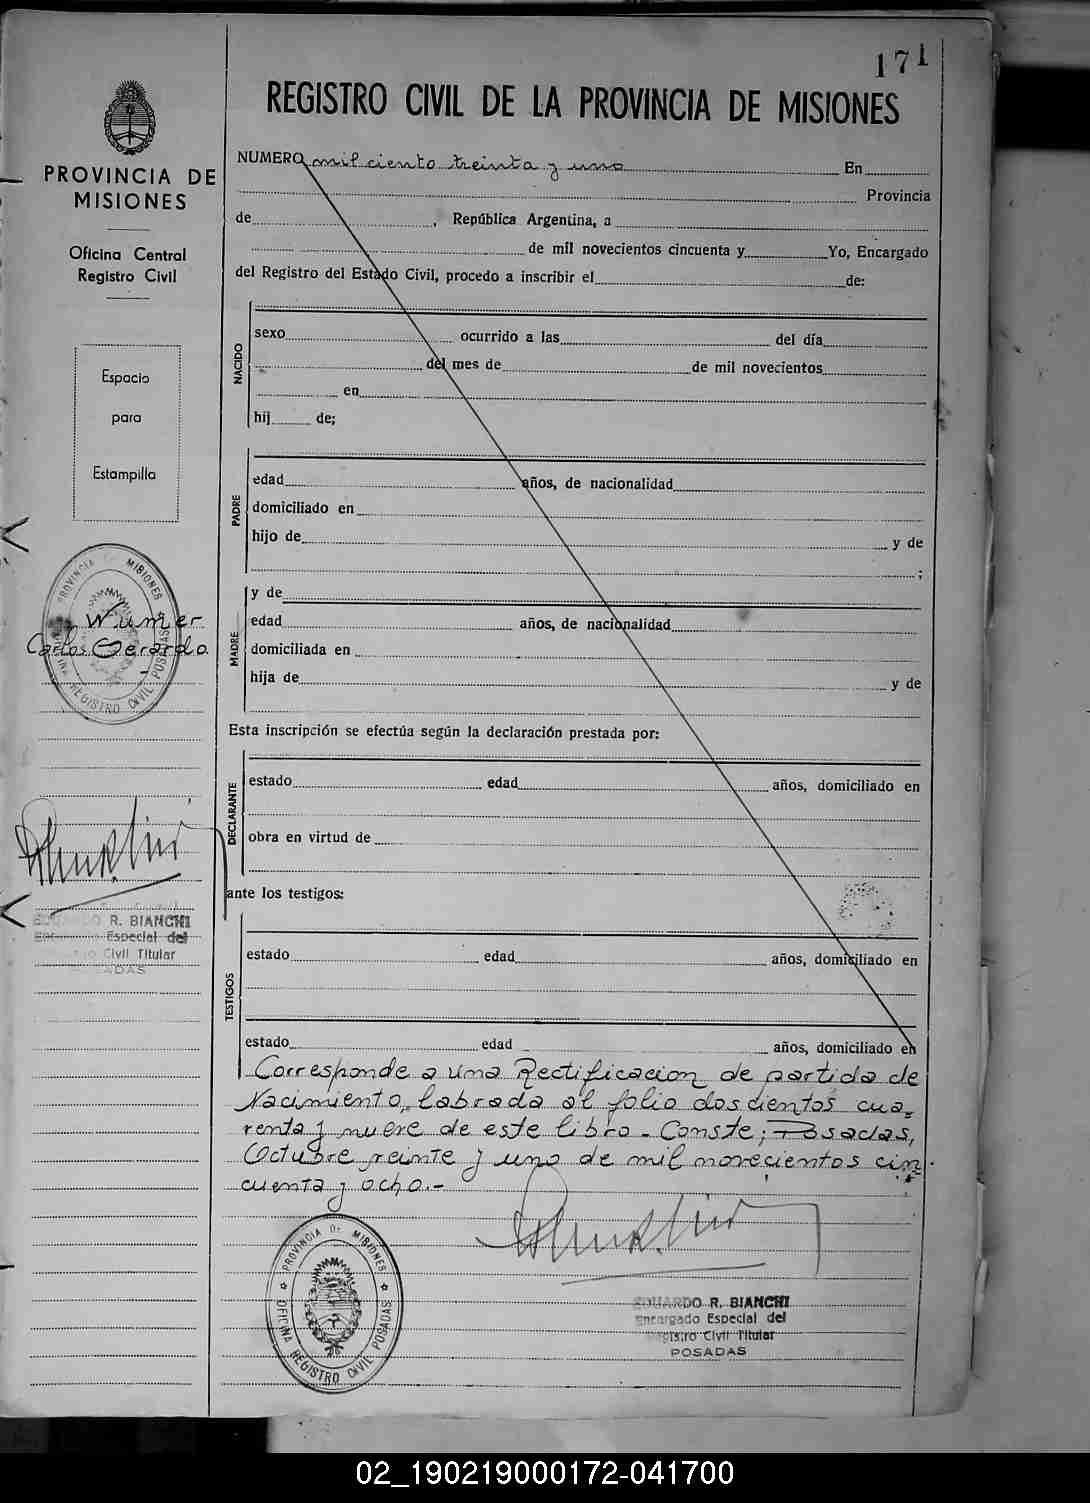 171
REGISTRO CIVIL DE LA PROVINCIA DE MISIONES
PROVINCIA DE
MISIONES
Oficina Central
Registro Civil
Espacio
para
Estampilla
PROVINCIA DE MISIONES
OFICINA REGISTRO CIVIL POSADAS
Carlos Gerardo
EDUARDO R. BIANCHI
Encargado Especial del
Registro Civil Titular
POSADAS
NUMERO mil ciento treinta y uno En
Provincia
de , República Argentina, a
de mil novecientos cincuenta y Yo, Encargado
del Registro del Estado Civil, procedo a inscribir el de:
NACIDO
sexo ocurrido a las del día
del mes de de mil novecientos
en
hij de;
PADRE
edad años, de nacionalidad
domiciliado en
hijo de y de
;
MADRE
y de
edad años, de nacionalidad
domiciliada en
hija de y de
Esta inscripción se efectúa según la declaración prestada por:
DECLARANTE
estado edad años, domiciliado en
obra en virtud de
ante los testigos:
TESTIGOS
estado edad años, domiciliado en
estado edad años, domiciliado en
Corresponde a una Rectificacion de partida de
Nacimiento, labrada al folio doscientos cua-
renta y nueve de este libro - Conste; Posadas,
Octubre veinte y uno de mil novecientos cin
cuenta y ocho.-
PROVINCIA DE MISIONES
OFICINA REGISTRO CIVIL POSADAS
EDUARDO R. BIANCHI
Encargado Especial del
Registro Civil Titular
POSADAS
02_190219000172-041700